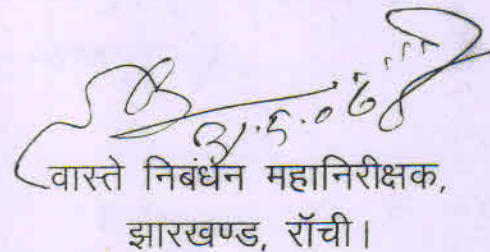 वास्ते निबंधन महानिरीक्षक,
झारखण्ड, राँची।